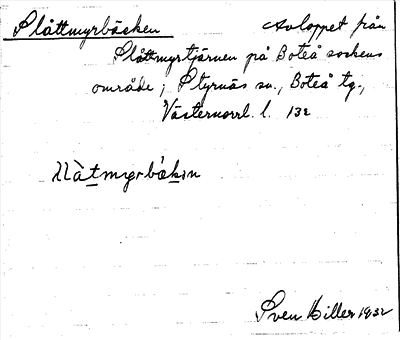 Slåttmyrbäcken Avloppet från
Slåttmyrtjärnen på Boteå sockens
område; Styrnäs sn., Boteå tg.,
Västernorrl. l. 132
Sven Hiller 1932